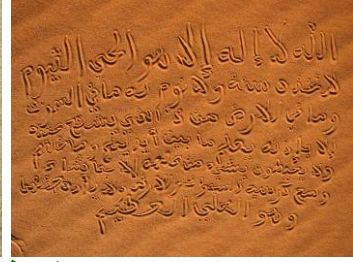 الله لا إله إلا هو الحي القيوم
لا تأخذه سنة ولا نوم له ما في السموت
وما في الارض من ذا الذي يشفع عنده
إلا باذنه يعلم ما بين أيديهم وما خلفهم
ولا يحيطون بشيء من علمه إلا بما شاء
وسع كرسيه السموت والارض ولا يؤده حفظهما
وهو العلي العظيم